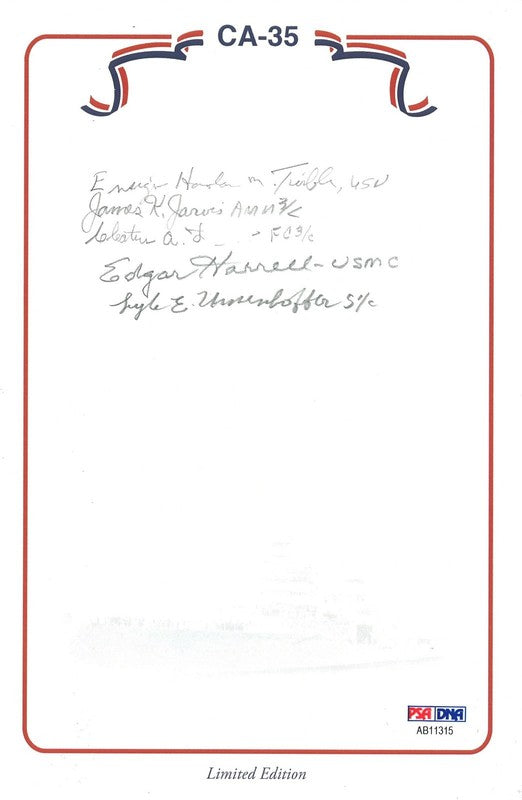 CA-35
Ensign Harlan M. Twible, USN
James K. Jarvis AMM 3/c
A. FC3/c
Edgar Harrell - USMC
Lyle E. Umenhoffer S1/c
PSA DNA
AB11315
Limited Edition